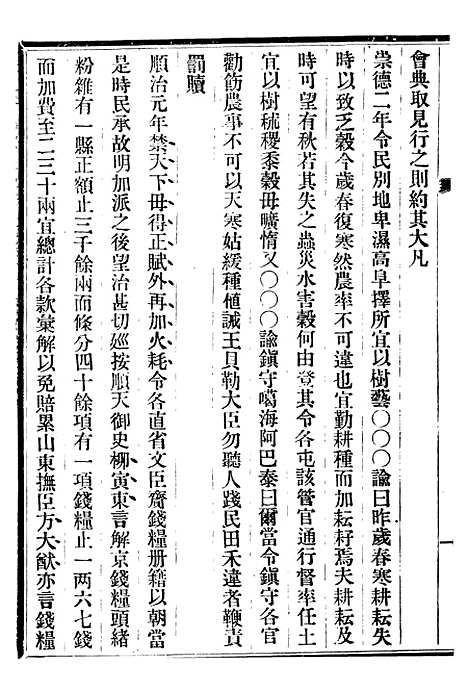 會典取見行之則約其大凡
崇德二年令民別地卑濕高阜擇所宜以樹藝〇〇〇諭曰昨歲春寒耕耘失
時以致乏穀今歲春復寒然農率不可違也宜勤耕種而加耘耔焉夫耕耘及
時可望有秋若其失之蟲災水害穀何由登其令各屯該管官通行督率任土
宜以樹秫稷黍穀毋曠惰又〇〇〇諭鎭守噶海阿巴泰曰爾當令鎭守各官
勸飭農事不可以天寒姑緩種植誡王貝勒大臣勿聽人踐民田禾違者鞭責
罰贖
順治元年禁天下毋得正賦外再加火耗令各直省文臣齎錢糧册籍以朝當
是時民承故明加派之後望治甚切廵按順天御史柳寅東言解京錢糧頭緒
粉雜有一縣正額止三千餘兩而條分四十餘項有一項錢糧止一两六七錢
而加費至二三十兩宜總計各款彙解以免賠累山東撫臣方大猷亦言錢糧
一